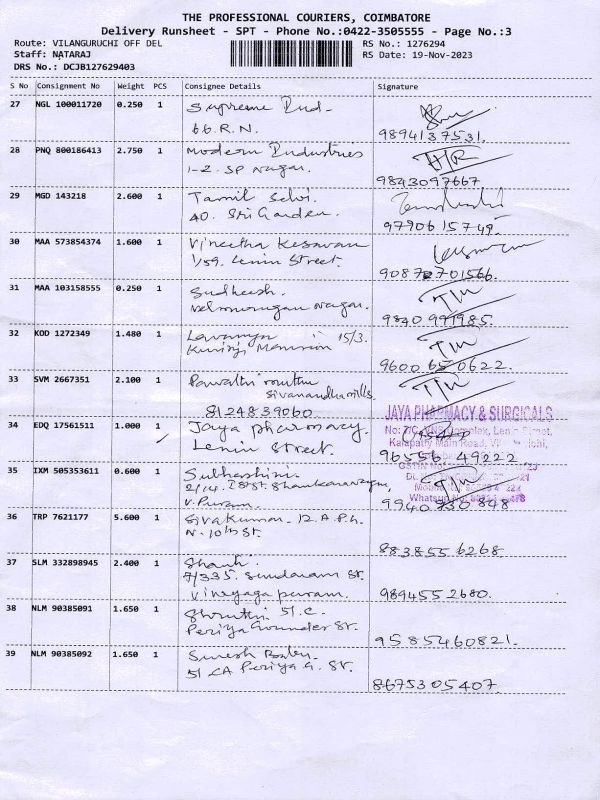 THE PROFESSIONAL COURIERS, COIMBATORE
Delivery Runsheet - SPT - Phone No.:0422-3505555 - Page No.:3
Route: VILANGURUCHI OFF DEL RS No.: 1276294
Staff: NATARAJ RS Date: 19-Nov-2023
DRS No.: DCJB127629403
S No Consignment No Weight PCS Consignee Details Signature
27 NGL 100011720 0.250 1 Supreme Ind.
66. R.N. 9894137531.
28 PNQ 800186413 2.750 1 Modern Industries H/R
1-2. SP Nagar. 9843097667
29 MGD 143218 2.600 1 Tamil Selvi.
40. Sri Garden. 9790615749.
30 MAA 573854374 1.600 1 Vineetha Kesavan
1/59. Lenin Street.
31 MAA 103158555 0.250 1 Sudheesh.
Nagar.
32 KOD 1272349 1.480 1 Lavanya 15/3.
33 SVM 2667351 2.100 1
Sivanandha mills.
8124839060
34 EDQ 17561511 1.000 1 Jaya pharmacy. JAYA PHARMACY & SURGICALS
Lenin Street. 96556 49222
35 IXM 505353611 0.600 1 Subhashini.
2/14. Shankara Nagar,
V. Puram. 9940730848
36 TRP 7621177 5.600 1 Siva Kumar. 12. A.P.L.
N. 10th St. 883855 6268
37 SLM 332898945 2.400 1 Shanti.
7/335. Sundaram St.
Vinayaga puram. 989455 2680.
38 NLM 90385091 1.650 1 Shruthi 51. C.
Periya Gounder St. 9585460821.
39 NLM 90385092 1.650 1 Suresh Babu.
51 CA Periya G. St. 8675305407